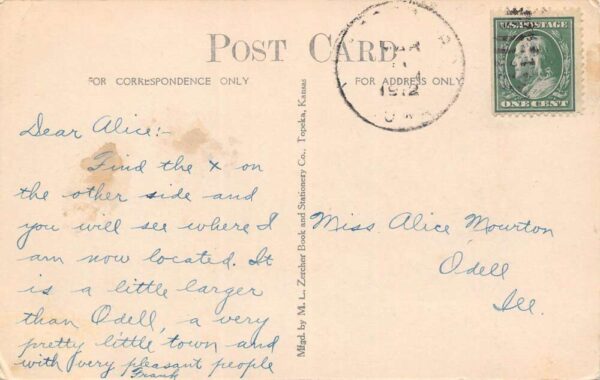 POST CARD
FOR CORRESPONDENCE ONLY
FOR ADDRESS ONLY
U.S. POSTAGE
ONE CENT
1912
Dear Alice:-
Find the x on
the other side and
you will see where I
am now located. It
is a little larger
than Odell, a very
pretty little town and
with very pleasant people
Frank
Mfgd. by M. L. Zercher Book and Stationery Co., Topeka, Kansas
Miss Alice Mourton
Odell
Ill.